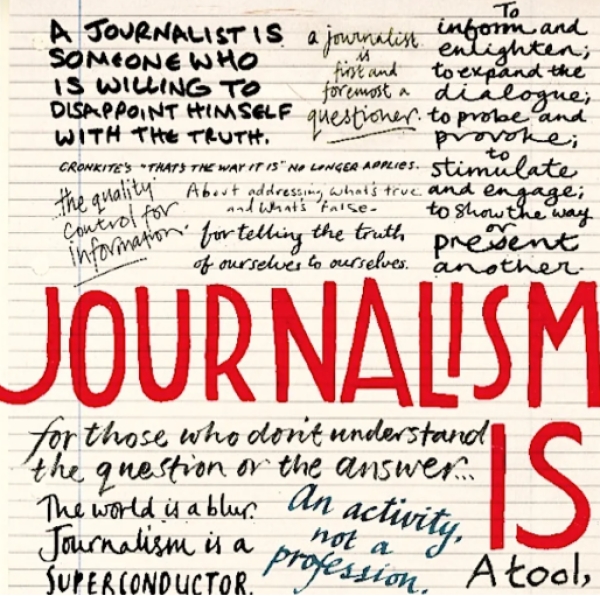 A JOURNALIST IS
SOMEONE WHO
IS WILLING TO
DISAPPOINT HIMSELF
WITH THE TRUTH.
a journalist
is
first and
foremost a
questioner.
To
inform and
enlighten;
to expand the
dialogue;
to probe and
provoke;
to
stimulate
and engage;
to show the way
or
present
another.
CRONKITE'S "THATS THE WAY IT IS" NO LONGER APPLIES.
...the quality
control for
information.
About addressing what's true
and what's false.
for telling the truth
of ourselves to ourselves.
JOURNALISM
IS
for those who don't understand
the question or the answer...
The world is a blur.
Journalism is a
SUPERCONDUCTOR.
An activity,
not a
profession.
A tool,